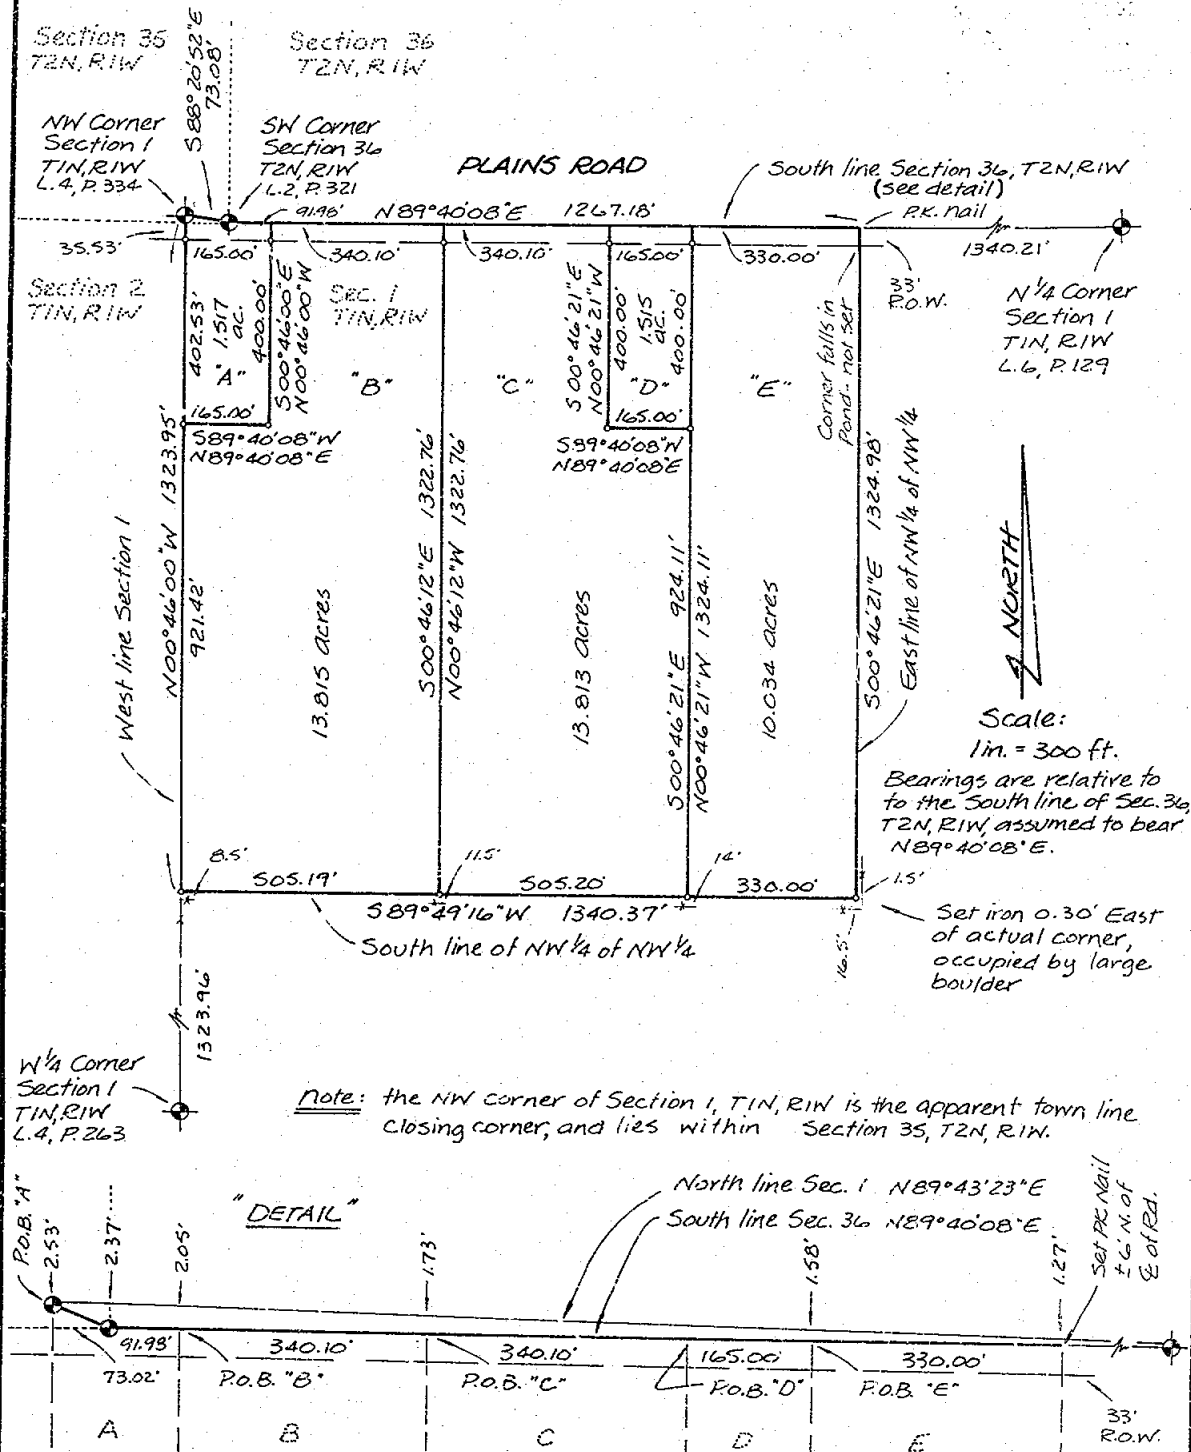 Section 35
T2N, R1W
S88°20'52"E
73.08'
Section 36
T2N, R1W
NW Corner
Section 1
T1N, R1W
L.4, P.334
SW Corner
Section 36
T2N, R1W
L.2, P.321
PLAINS ROAD
South line Section 36, T2N, R1W
(see detail)
P.K. nail
91.98'
N89°40'08"E 1267.18'
35.53'
165.00'
340.10'
340.10'
165.00'
330.00'
1340.21'
33'
R.O.W.
N 1/4 Corner
Section 1
T1N, R1W
L.6, P.129
Section 2
T1N, R1W
Sec. 1
T1N, R1W
402.53'
1.517
ac.
"A"
400.00'
S00°46'00"E
N00°46'00"W
"B"
"C"
S00°46'21"E
N00°46'21"W
400.00'
1.515
ac.
"D"
400.00'
"E"
Corner falls in
Pond - not set
165.00'
S89°40'08"W
N89°40'08"E
165.00'
S.89°40'08"W
N89°40'08"E
N00°46'00"W 1323.95'
921.42'
West line Section 1
13.815 acres
S00°46'12"E 1322.76'
N00°46'12"W 1322.76'
13.813 acres
S00°46'21"E 924.11'
N00°46'21"W 1324.11'
10.034 acres
S00°46'21"E 1324.98'
East line of NW 1/4 of NW 1/4
NORTH
Scale:
1in. = 300 ft.
Bearings are relative to
to the South line of Sec. 36,
T2N, R1W, assumed to bear
N89°40'08"E.
8.5'
11.5'
14'
1.5'
505.19'
505.20'
330.00'
S89°49'16"W 1340.37'
South line of NW 1/4 of NW 1/4
16.5'
Set iron 0.30' East
of actual corner,
occupied by large
boulder
1323.96'
W 1/4 Corner
Section 1
T1N, R1W
L.4, P.263
Note: the NW corner of Section 1, T1N, R1W is the apparent town line
closing corner, and lies within Section 35, T2N, R1W.
"DETAIL"
North line Sec. 1 N89°43'23"E
South line Sec. 36 N89°40'08"E
P.O.B. "A"
2.53'
2.37'
2.05'
1.73'
1.58'
1.27'
Set PK Nail
±6' N. of
℄ of Rd.
91.98'
340.10'
340.10'
165.00'
330.00'
73.02'
P.O.B. "B"
P.O.B. "C"
P.O.B. "D"
P.O.B. "E"
33'
R.O.W.
A
B
C
D
E